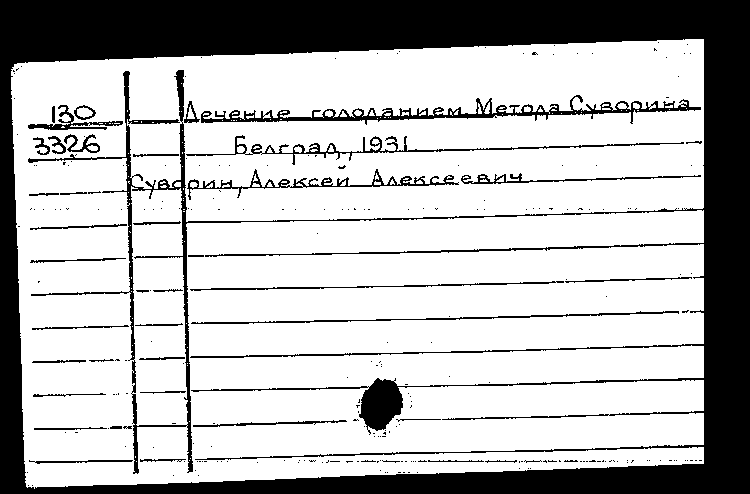 130 Лечение голоданием. Метода Суворина
3326 Белград, 1931
Суворин, Алексей Алексеевич